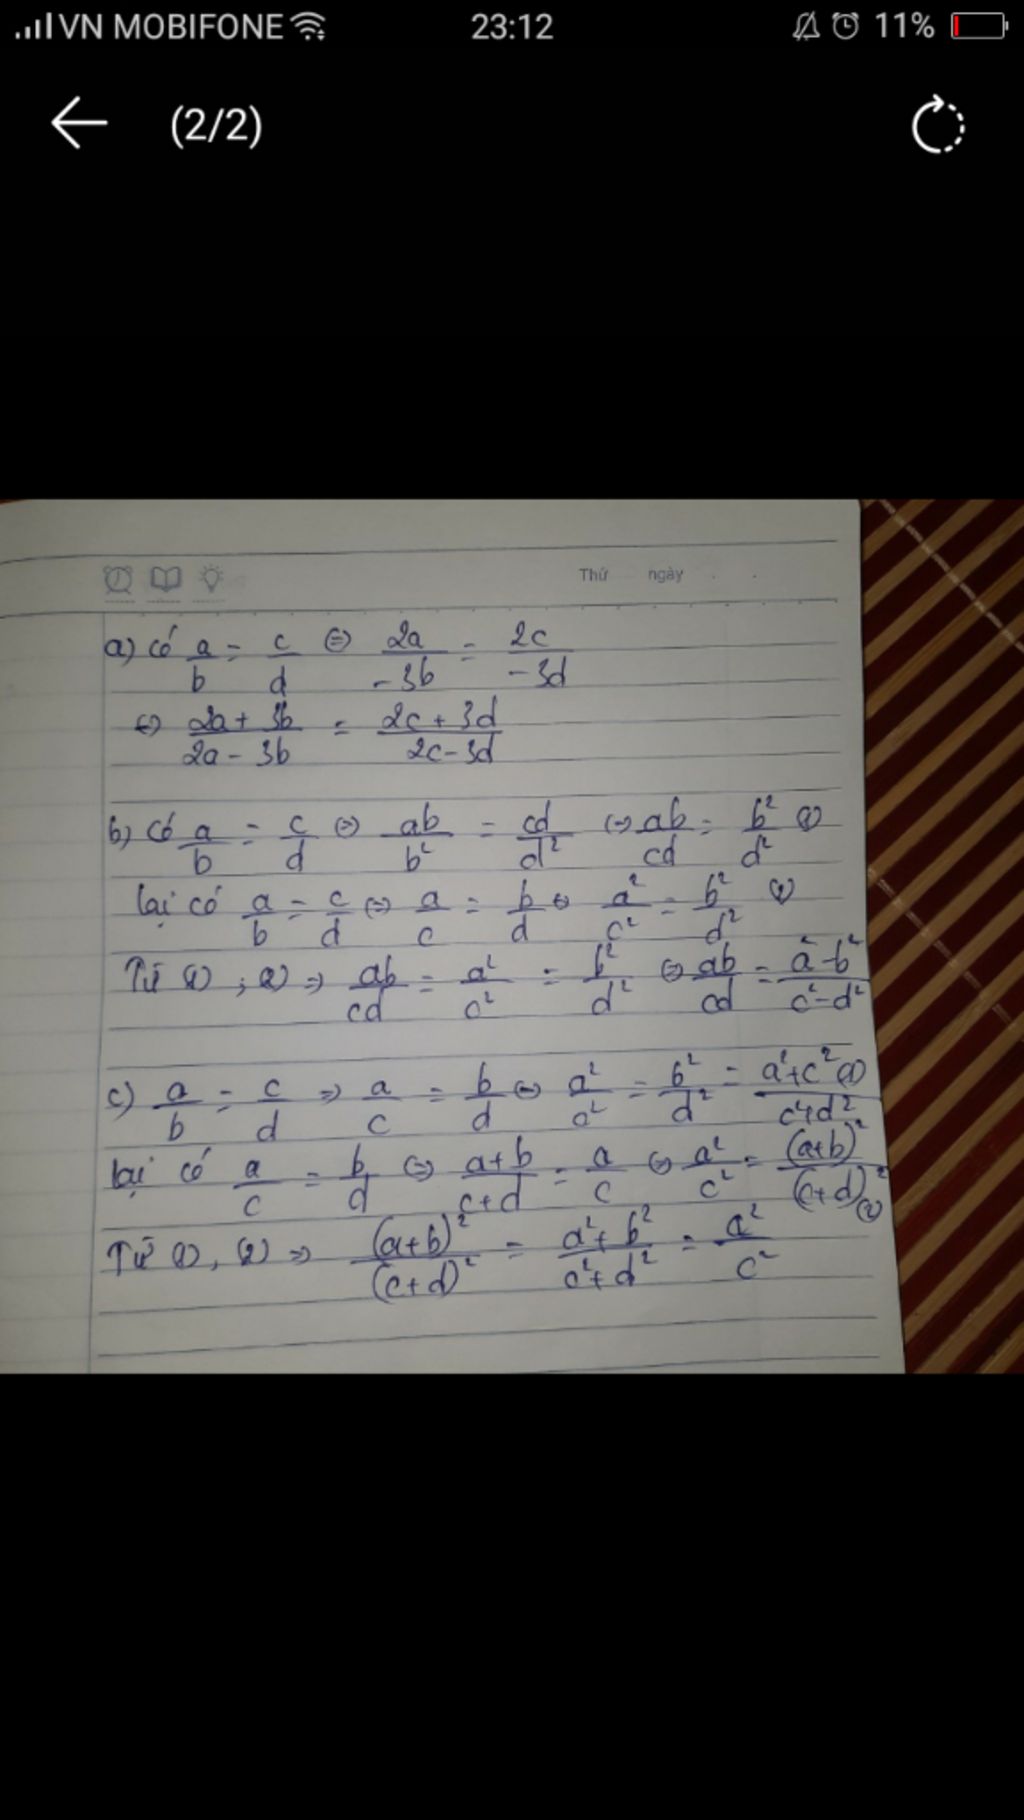 VN MOBIFONE 23:12 11%
(2/2)
Thứ ngày
a) có a/b = c/d ⇔ 2a/-3b = 2c/-3d
⇔ (2a + 3b)/(2a - 3b) = (2c + 3d)/(2c - 3d)
b) có a/b = c/d ⇔ ab/b² = cd/d² ⇔ ab/cd = b²/d² (1)
lại có a/b = c/d ⇔ a/c = b/d ⇔ a²/c² = b²/d² (2)
Từ (1) ; (2) ⇒ ab/cd = a²/c² = b²/d² ⇔ ab/cd = (a² - b²)/(c² - d²)
c) a/b = c/d ⇒ a/c = b/d ⇔ a²/c² = b²/d² = (a² + c²)/(c² + d²) (1)
lại có a/c = b/d ⇔ (a + b)/(c + d) = a/c ⇔ a²/c² = (a+b)²/(c+d)² (2)
Từ (1), (2) ⇒ (a+b)²/(c+d)² = (a² + b²)/(c² + d²) = a²/c²